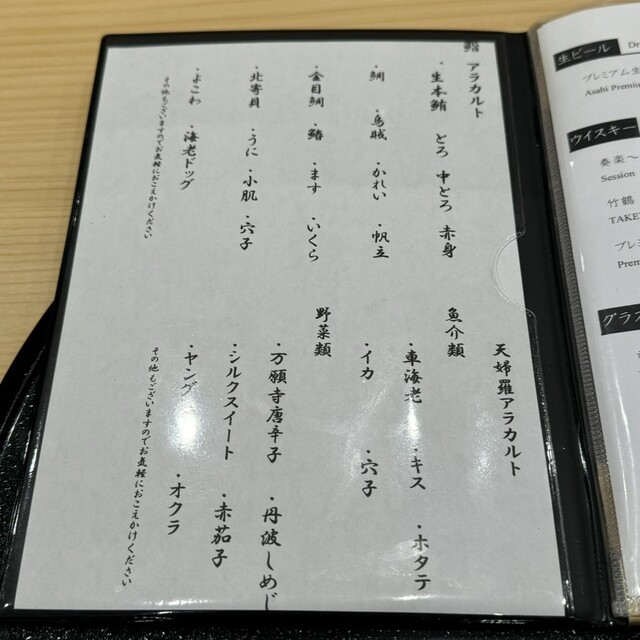 鮨 アラカルト
・生本鮪 とろ 中とろ 赤身
・鯛 ・烏賊 ・かれい ・帆立
・金目鯛 ・鰆 ・ます ・いくら
・北寄貝 ・うに ・小肌 ・穴子
・よこわ ・海老ドッグ
その他もございますのでお気軽におこえかけください
天婦羅アラカルト
魚介類
・車海老 ・キス ・ホタテ
・イカ ・穴子
野菜類
・万願寺唐辛子 ・丹波しめじ
・シルクスイート ・赤茄子
・ヤング ・オクラ
その他もございますのでお気軽におこえかけください
生ビール
プレミアム生
Asahi Premiu
ウイスキー
奏楽〜
Session
竹鶴
TAKE
プレミ
Prem
グラス